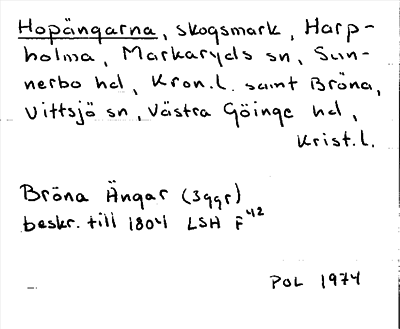 Hopängarna, skogsmark, Harp-
holma, Markaryds sn, Sun-
nerbo hd, Kron.l. samt Bröna,
Vittsjö sn, Västra Göinge hd,
Krist.l.
Bröna Ängar (3ggr)
beskr. till 1804 LSH F42
POL 1974